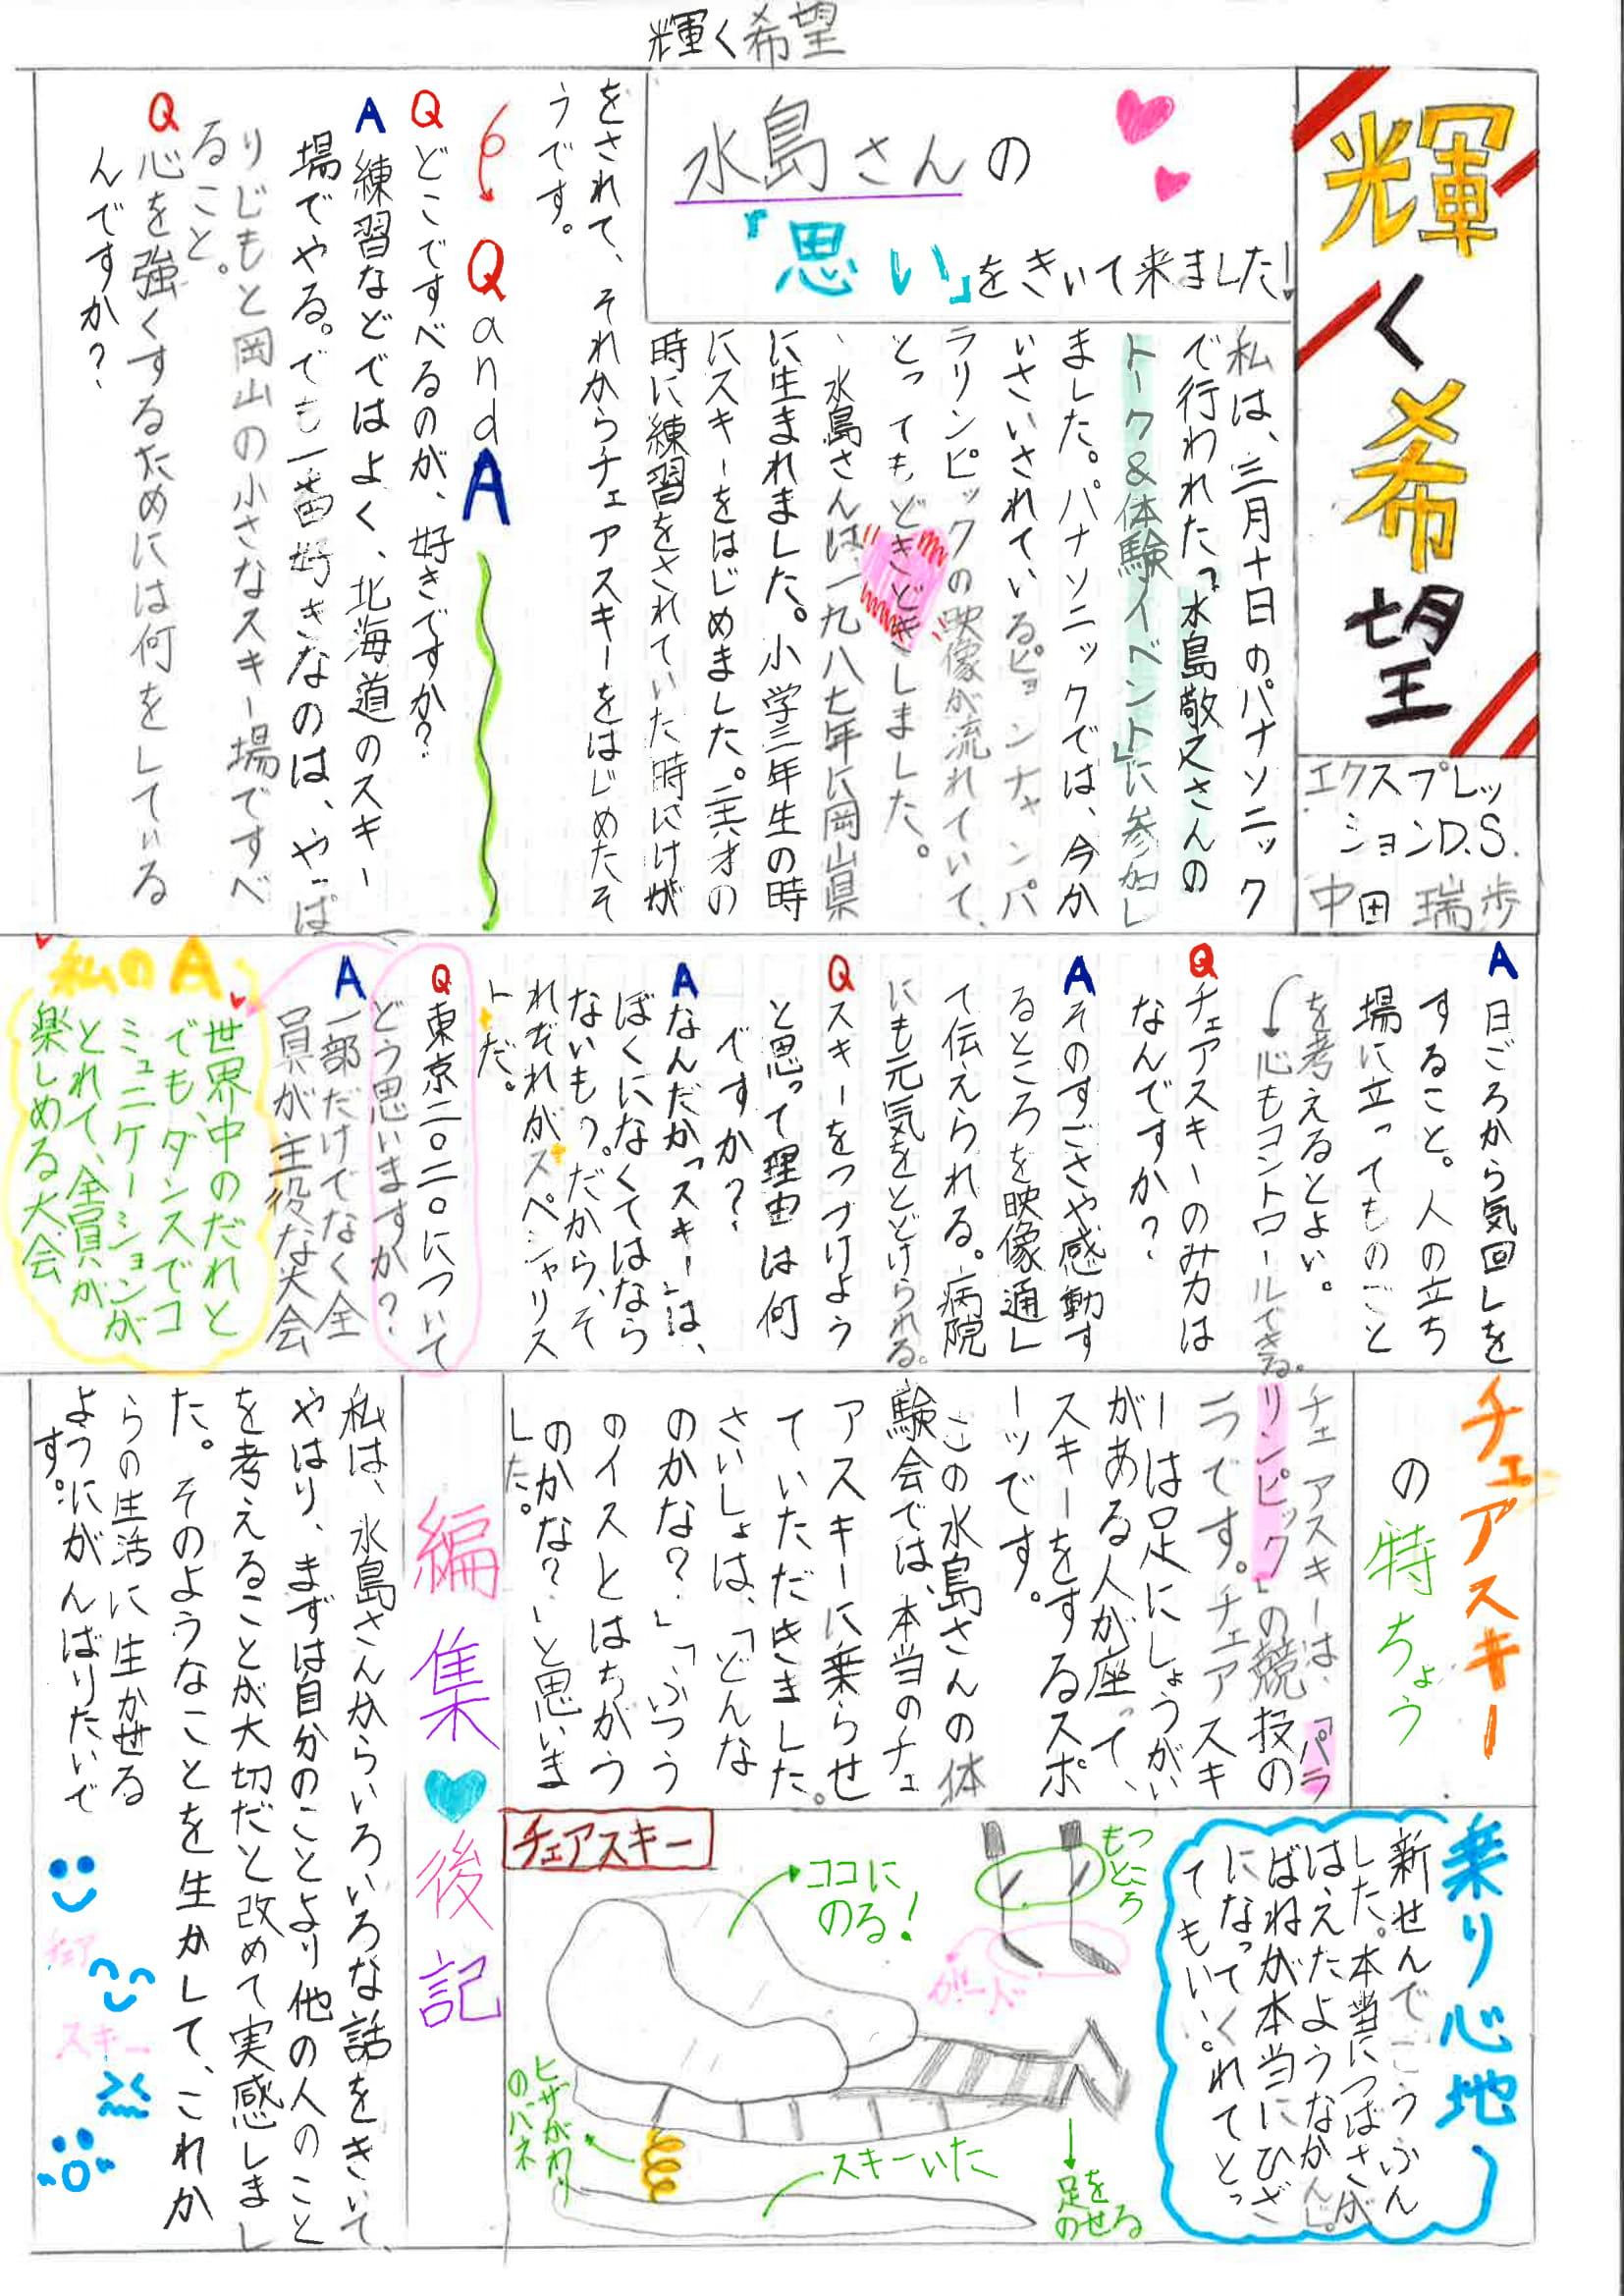 輝く希望
輝く希望
エクスプレッ
ションD.S.
中田 瑞歩
水島さんの
「思い」をきいて来ました!
私は、三月十日のパナソニック
で行われた「水島敬文さんの
トーク&体験イベント」に参加し
ました。パナソニックでは、今か
いさいされているピョンチャンパ
ラリンピックの映像が流れていて、
とってもどきどきしました。
水島さんは、一九八七年に岡山県
に生まれました。小学三年生の時
にスキーをはじめました。二十六才の
時に練習をされていた時にけが
をされて、それからチェアスキーをはじめたそ
うです。
Q and A
Q どこですべるのが、好きですか?
A 練習などではよく、北海道のスキー
場でやる。でも一番好きなのは、やっぱ
りじもと岡山の小さなスキー場ですべ
ること。
Q 心を強くするためには何をしている
んですか?
A 日ごろから気回しを
すること。人の立ち
場に立ってものごと
を考えるとよい。
心もコントロールできる。
Q チェアスキーのみ力は
なんですか?
A そのすごさや感動す
るところを映像通し
て伝えられる。病院
にも元気をとどけられる。
Q スキーをつづけよう
と思って理由は何
ですか?
A なんだか「スキー」は、
ぼくになくてはなら
ないもの。だから、そ
れぞれがスペシャリス
トだ。
Q 東京二〇二〇について
どう思いますか?
A 一部だけでなく全
員が主役な大会
私のA
世界中のだれと
でも、ダンスでコ
ミュニケーションが
とれて、全員が
楽しめる大会
チェアスキー
の特ちょう
チェアスキーは、「パラ
リンピック」の競技の
一つです。チェアスキ
ーは足にしょうがい
がある人が座って、
スキーをするスポ
ーツです。
この水島さんの体
験会では、本当のチェ
アスキーに乗らせ
ていただきました。
さいしょは、「どんな
のかな?」「ふつう
のイスとはちがう
のかな?」と思いま
した。
乗り心地
新せんでこうふん
した。本当につばさが
はえたようなかんじ。
ばねが本当にひざ
になってくれてとっ
てもいい。
チェアスキー
ココに
のる!
もつ
ところ
ヒザがわり
のバネ
スキーいた
足を
のせる
編集後記
私は、水島さんからいろいろな話をきいて、
やはり、まずは自分のことより他の人のこと
を考えることが大切だと改めて実感しまし
た。そのようなことを生かして、これか
らの生活に生かせる
ようにがんばりたいで
す。
チェア
スキー